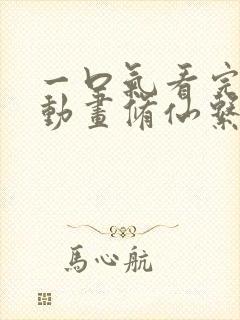 一口氣看完
動畫脩仙系
馬心航